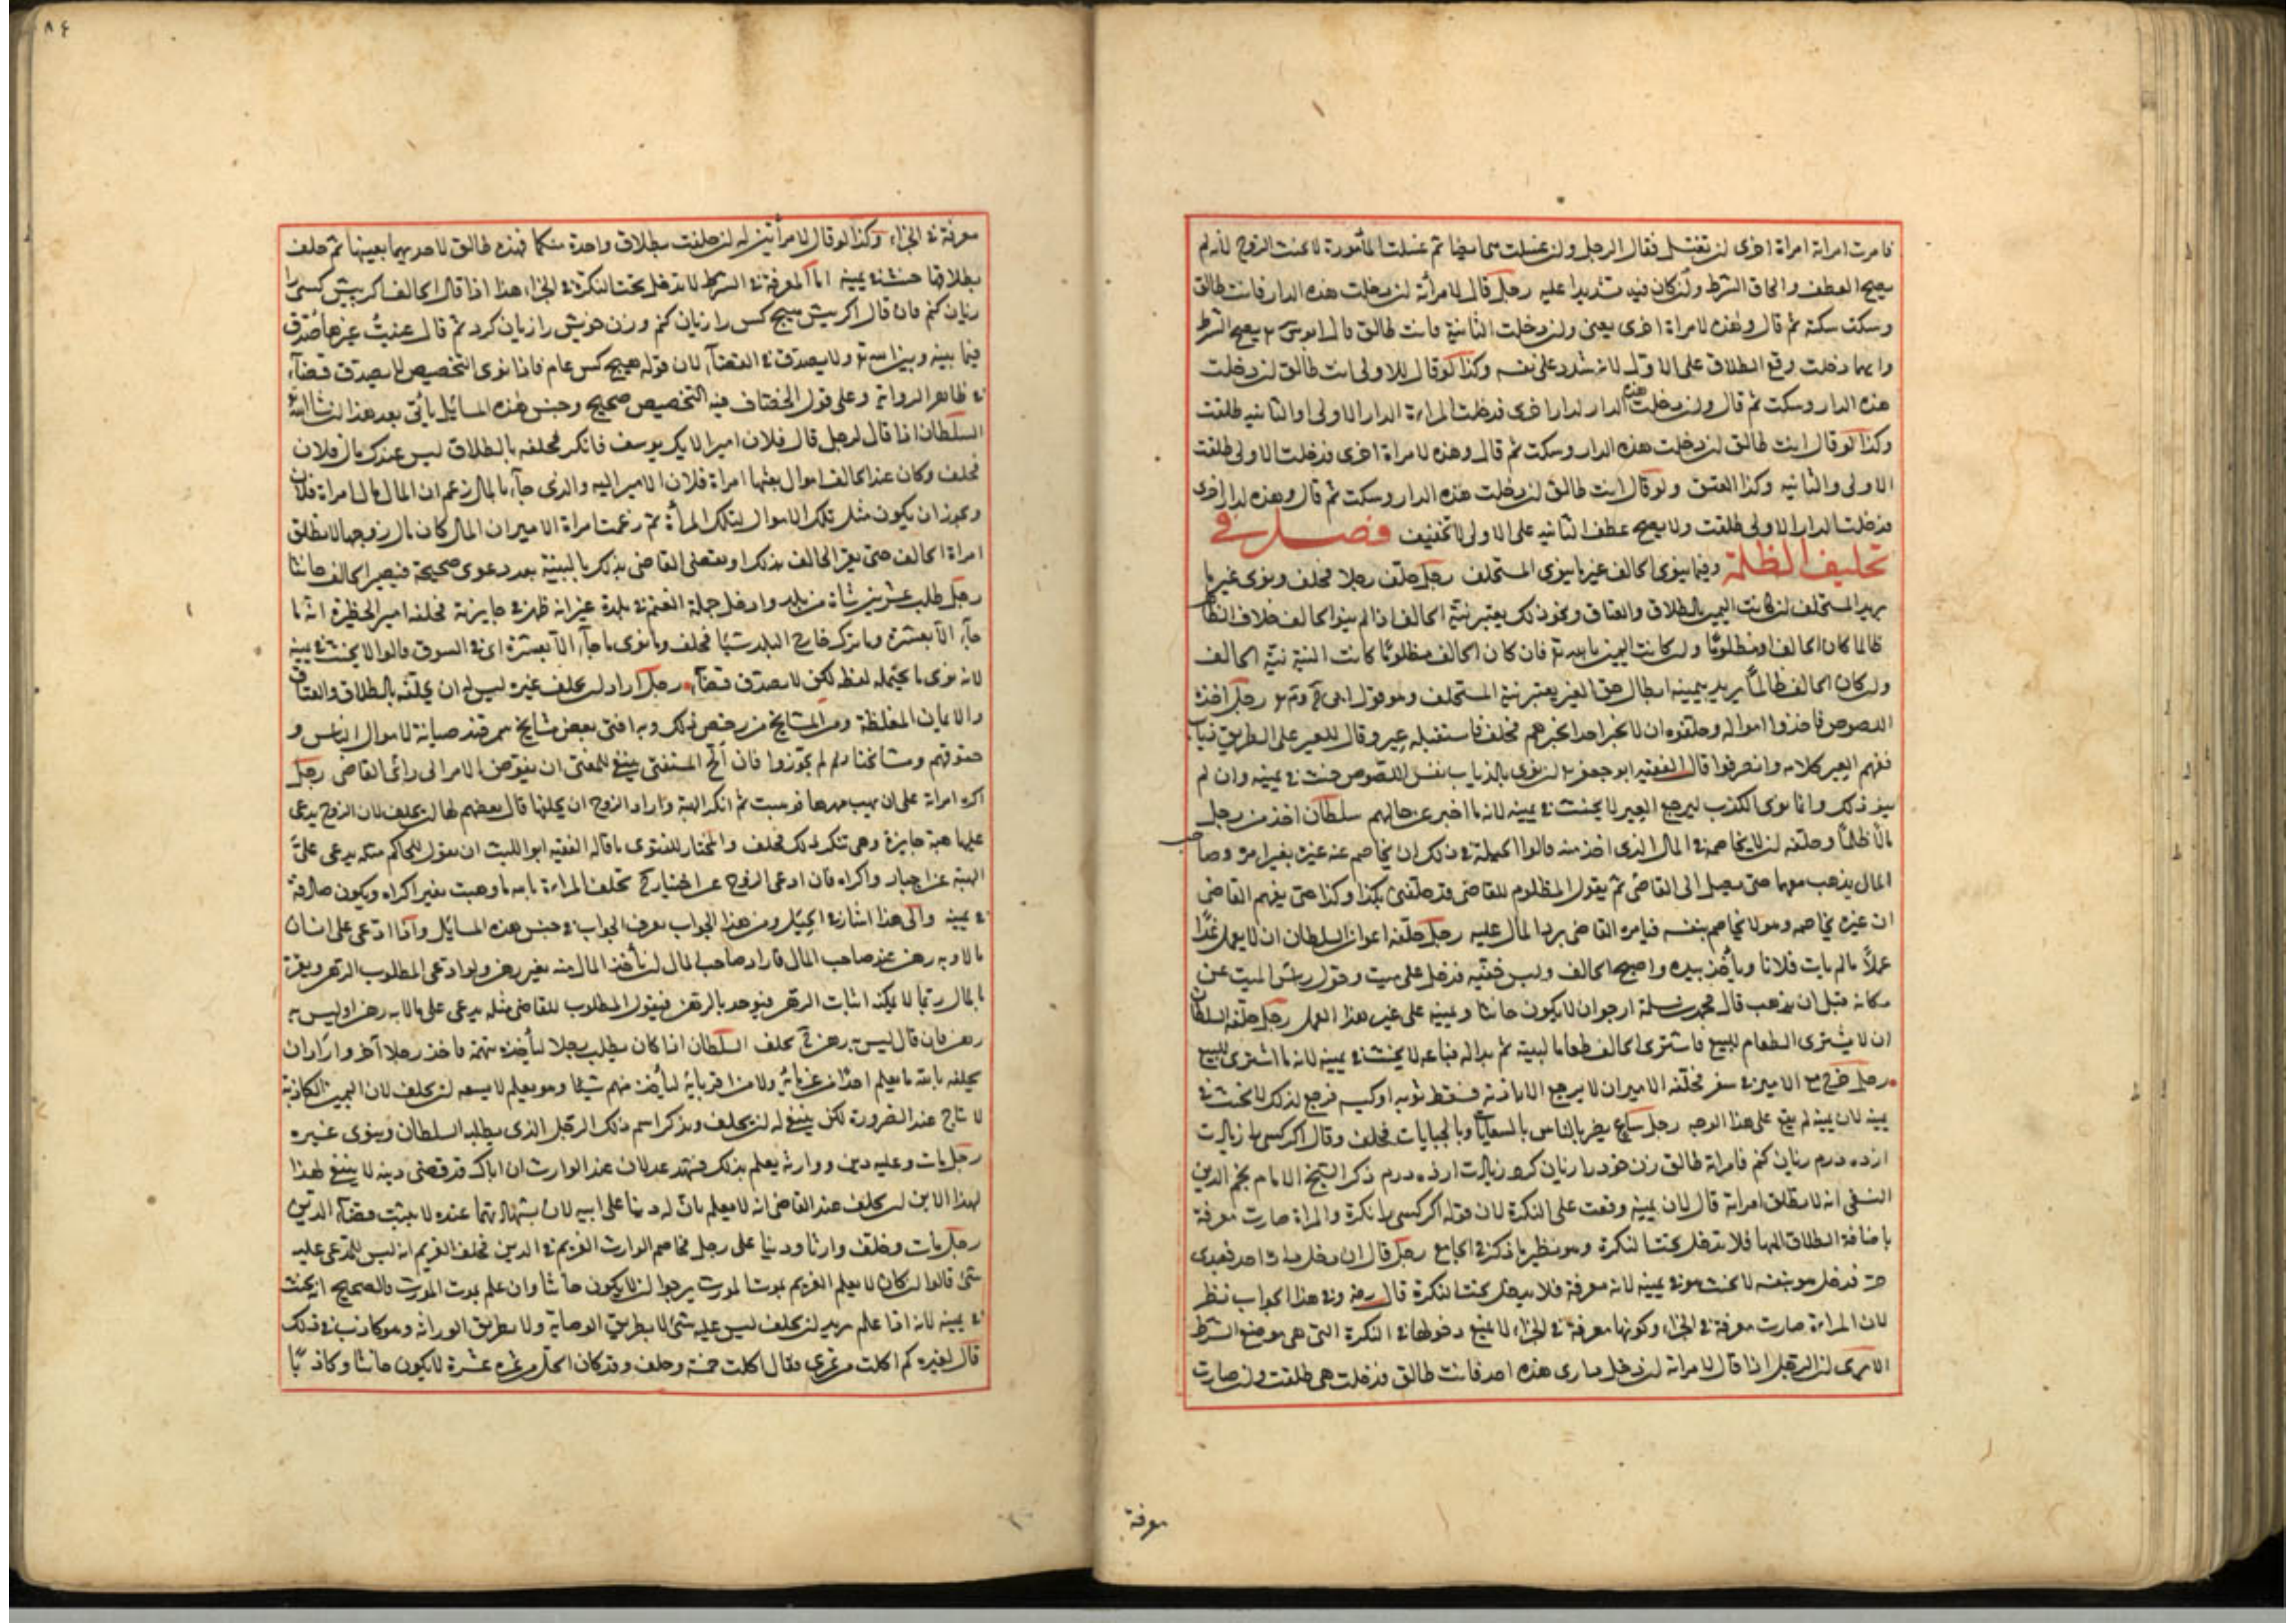 فامرت امراة امراة اخرى ان تغتسل فقال الرجل وان غسلت ثم غسلت المأمورة لا يحنث الزوج لأنه لم
يصح العطف والحاق الشرط وان كان فيه تشديدا عليه رجل قال لامرأته ان دخلت هذه الدار فانت طالق
وسكت سكتة ثم قال وهذه لامراة اخرى يعنى وان دخلت الثانية فانت طالق قال ابو يوسف يصح الشرط
وايهما دخلت وقع الطلاق على الاولى لانه شدد على نفسه وكذا لو قال للاولى انت طالق ان دخلت
هذه الدار وسكت ثم قال وان دخلت هذه الدار لدار اخرى فدخلت المراءة الدار الاولى او الثانية طلقت
وكذا لو قال انت طالق ان دخلت هذه الدار وسكت ثم قال وهذه لامراة اخرى فدخلت الاولى طلقت
الاولى والثانيه وكذا العتق ولو قال انت طالق ان دخلت هذه الدار وسكت ثم قال وهذه لدار اخرى
فدخلت الدار الاولى طلقت ولا يصح عطف الثانيه على الاولى لا تخفيف فصل فى
تحليف الظلمة وفيما ينوى الحالف غير ما ينوى المستحلف رجل حلف رجلا فحلف ونوى غير ما
يريد المستحلف ان كانت اليمين بالطلاق والعتاق ونحو ذلك يعتبر نية الحالف اذا لم ينو الحالف خلاف الظاهر
ظالما كان الحالف او مظلومًا وان كانت اليمين بالله تع فان كان الحالف مظلومًا كانت النية نية الحالف
وان كان الحالف ظالمًا يريد بيمينه ابطال حق الغير يعتبر نية المستحلف وهو قول رجل اخذه
اللصوص فاخذوا امواله وحلفوه ان لا يخبر احدا بخبرهم فحلف فاستقبله عير وقال للعير على الطريق ذياب
ففهم العير كلامه وانصرفوا قال الفقيه ابو جعفر ان نوى بالذياب نفس اللصوص حنث فى يمينه وان لم
ينو ذلك وانما نوى الكذب ليرجع العير لا يحنث فى يمينه لانه ما اخبر عن حالهم سلطان اخذ من رجل
مالًا ظلمًا وحلفه ان لا يخاصمه فى المال الذى اخذ منه قالوا الحيلة فى ذلك ان يخاصم عنه غيره بغير امره وصاحب
المال يذهب معهما حتى يصل الى القاضى ثم يقول المظلوم للقاضى قد حلفنى بكذا وكذا حتى يفهم القاضى
ان غيره يخاصمه وهو لا يخاصم بنفسه فيامره القاضى برد المال عليه رجل حلفه اعوان السلطان ان لا يعمل غدًا
عملًا ما لم يات فلانا وياخذ بيده واصبح الحالف ولبس خفيه فدخل على ميت وحول راس الميت عن
مكانه قبل ان يذهب قال محمد بن سلمة ارجو ان لا يكون حانثا ويمينه على غير هذا العمل رجل حلفه السلطان
ان لا يشترى الطعام للبيع فاشترى الحالف طعاما لبيته ثم بدا له فباعه لا يحنث فى يمينه لانه ما اشترى للبيع
رجل خرج مع الامير فى سفر فحلفه الامير ان لا يرجع الا باذنه فسقط ثوبه او كيسه فرجع لذلك لا يحنث فى
يمينه لان يمينه لم يقع على هذا الوجه رجل ساع يضر بالناس بالسعايات وبالجبايات فحلف وقال اكر كسى را زيادت
ازده درم زيان كنم فامراته طالق زن خود را زيان كرد زيادت ازده درم ذكر الشيخ الامام نجم الدين
النسفى انه لا يطلق امراته قال لان يمينه وقعت على النكرة لان قوله اكر كسى را نكرة والمراة صارت معرفة
باضافة الطلاق اليها فلا تدخل تحت النكرة وهو نظير ما ذكر فى الجامع رجل قال ان دخل دارى احد فعبدى
حر فدخل هو بنفسه لا يحنث هو فى يمينه لانه معرفة فلا يدخل تحت النكرة قال رضه وفى هذا الجواب نظر
لان المراءة صارت معرفة فى الجزاء وكونها معرفة فى الجزاء لا يمنع دخولها فى النكرة التى هى موضع الشرط
الا يرى ان الرجل اذا قال لامراته ان دخل دارى هذه احد فانت طالق فدخلت هى طلقت وان صارت
معرفة
٨٤
معرفة فى الجزاء وكذا لو قال لامرأتين له ان حلفت بطلاق واحدة منكما فهذه طالق لاحديهما بعينها ثم حلف
بطلاقها حنث فى يمينه اما المعرفة فى الشرط لا تدخل تحت النكرة فى الجزاء هذا اذا قال الحالف اكر بيش كسى را
زيان كنم فان قال اكر بيش هيچ كس را زيان كنم وزن خويش را زيان كرد ثم قال عنيتُ غيرها صُدّق
فيما بينه وبين الله تع ولا يصدق فى القضاء لان قوله هيچ كس عام فاذا نوى التخصيص لا يصدق قضاء
فى ظاهر الرواية وعلى قول الخصاف فيه التخصيص صحيح وجنس هذه المسائل يأتى بعد هذا ان شاء الله
السلطان اذا قال لرجل قال فلان امير فانكر فحلفه بالطلاق ليس عندك مال فلان
فحلف وكان عند الحالف اموال بعثها امراة فلان الامير اليه والذى جاء بالمال زعم ان المال مال امراة فلان
ويجوز ان يكون مثل تلك الاموال لتلك المرأة ثم زعمت امراة الامير ان المال كان مال زوجها لا يطلق
امراة الحالف حتى يقر الحالف بذلك او يقضى القاضى بذلك بالبينة بعد دعوى صحيحة فيصير الحالف حانثا
رجل طلب عشرين شاة من بلد وادخل جملة الغنم فى بلدة غير انه ظهر فحلفه امير الحظيرة انه ما
جاء الا بعشرة وما ترك خارج البلد شيًا فحلف ونوى ما جاء الا بعشرة اى فى السوق قالوا لا يحنث فى يمينه
لانه نوى ما يحتمله لفظه لكن لا يصدق قضاءً رجل اراد ان يحلف غيره ليس له ان يحلفه بالطلاق والعتاق
والايمان المغلظة ومن المشايخ من رخص ذلك وبه افتى بعض مشايخ سمرقند صيانة لاموال الناس و
حقوقهم ومشايخنا لم يجوزوا فان الح المستفتى ينبغى للمفتى ان يفوض الامر الى رأى القاضى رجل
اكره امراته على ان تهب مهرها فوهبت ثم انكر الهبة واراد الزوج ان يحلفها قال بعضهم لها ان يحلف لان الزوج يدعى
عليها هبة جايزة وهى تنكر ذلك فحلف والمختار للفتوى ما قاله الفقيه ابو الليث ان تقول للحاكم سله يدعى على
الهبة عن اجبار واكراه فان ادعى الزوج عن اختيار تحلف المراءة بالله ما وهبت بغير اكراه ويكون صادقة
فى يمينه والى هذا اشار فى الحِيَل ومن هذا الجواب يعرف الجواب فى جنس هذه المسائل واذا ادعى على انسان
مالا وبه رهن عند صاحب المال فاراد صاحب المال ان يأخذ المال منه بغير رهن ولو ادعى المطلوب الرهن ويقر
بالمال ربما لا يمكنه اثبات الرهن فيؤخذ بالرهن فيقول المطلوب للقاضى سله يدعى على مالا به رهن او ليس به
رهن فان قال ليس به رهن تحلف السلطان اذا كان يطلب رجلا ليأخذه بتهمة فاخذ رجلا آخر واراد ان
يحلفه بالله ما يعلم احدًا من غرمائه ولا من اقربائه ليأخذ منهم شيًا وهو يعلم لا يسعه ان يحلف لان اليمين الكاذبة
لا تباح عند الضرورة لكن ينبغى له ان يحلف ويذكر اسم ذلك الرجل الذى يطلبه السلطان وينوى غيره
رجل مات وعليه دين ووارثه يعلم بذلك فشهد عدلان عند الوارث ان اباك قد قضى دينه لا ينبغى لهذا
لهذا الابن ان يحلف عند القاضى انه لا يعلم بان له دينا على ابيه لان بشهادتهما عنده لا يثبت قضاء الدين
رجل مات وخلف وارثا ودينا على رجل فخاصم الوارث الغريم فى الدين فحلف الغريم انه ليس للمدعى عليه
شئ قالوا ان كان لا يعلم الغريم بموت المورث يرجوا ان لا يكون حانثا وان علم بموت المورث فالصحيح انه يحنث
فى يمينه لانه اذا علم يريد ان يحلف ليس عليه شئ لا بطريق الوصاية ولا بطريق الوراثة وهو كاذب فى ذلك
قال لغيره كم اكلت من تمرى فقال اكلت خمسة وحلف وقد كان اكل من تمره عشرة لا يكون حانثا وكاذبًا